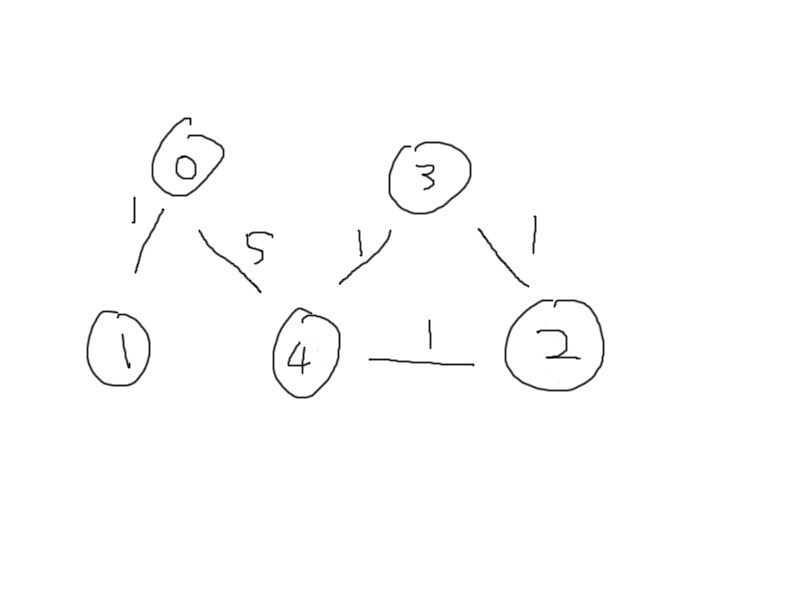 0
3
1
5
1
1
1
4
1
2